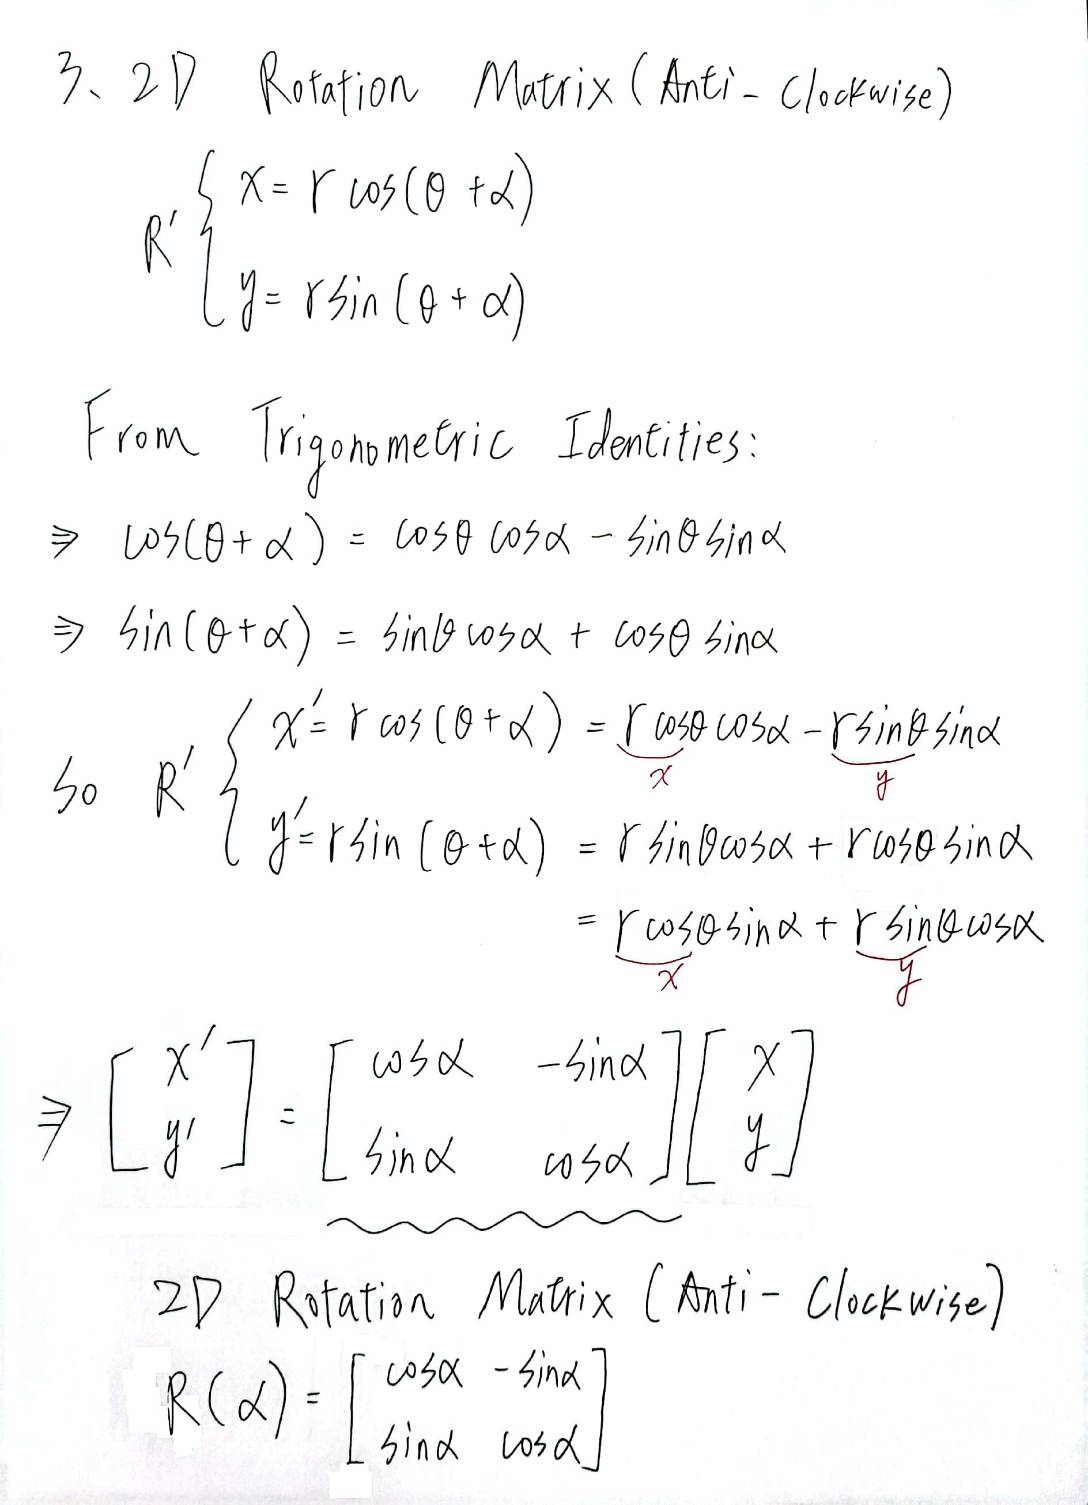 3、2D Rotation Matrix (Anti-Clockwise)
R' { x = r cos(θ + α)
y = r sin(θ + α)
From Trigonometric Identities:
⇒ cos(θ + α) = cosθ cosα - sinθ sinα
⇒ sin(θ + α) = sinθ cosα + cosθ sinα
So R' { x' = r cos(θ + α) = r cosθ cosα - r sinθ sinα
x y
y' = r sin(θ + α) = r sinθ cosα + r cosθ sinα
= r cosθ sinα + r sinθ cosα
x y
⇒ [x' y'] = [cosα -sinα sinα cosα] [x y]
2D Rotation Matrix (Anti-Clockwise)
R(α) = [cosα -sinα sinα cosα]